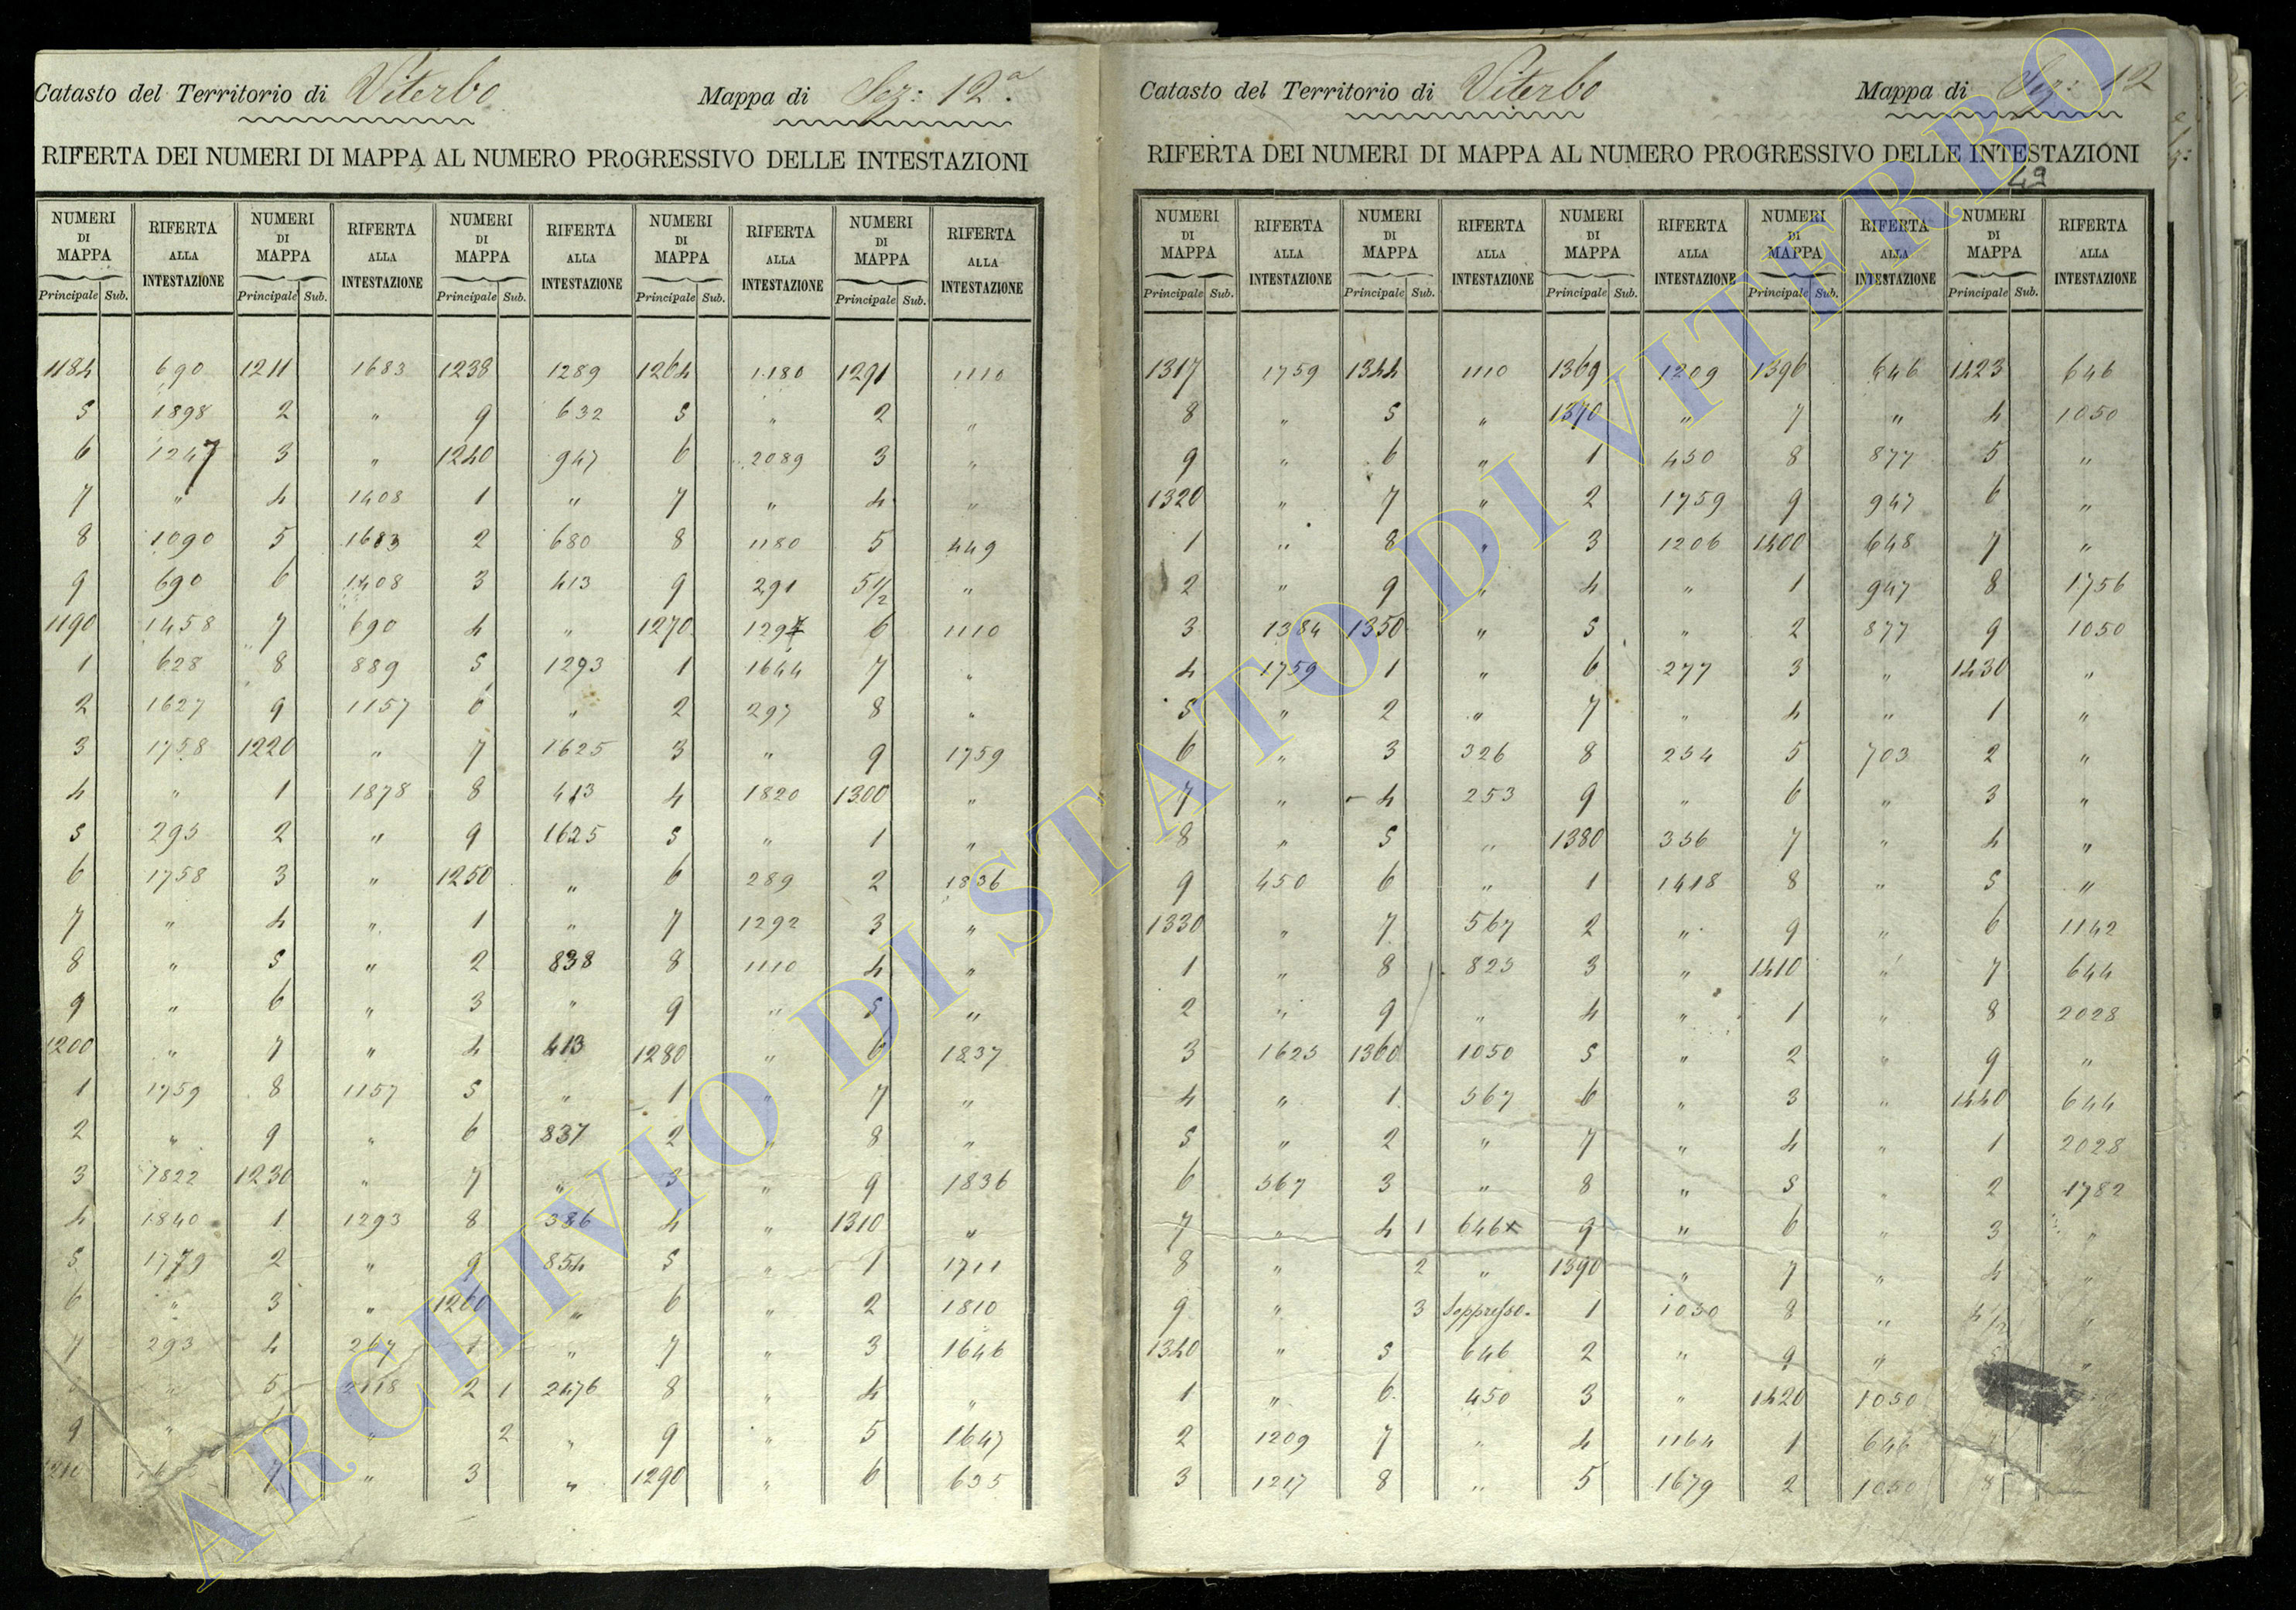 Catasto del Territorio di Viterbo Mappa di Sez: 12ª
RIFERTA DEI NUMERI DI MAPPA AL NUMERO PROGRESSIVO DELLE INTESTAZIONI
NUMERI DI MAPPA RIFERTA ALLA INTESTAZIONE NUMERI DI MAPPA RIFERTA ALLA INTESTAZIONE NUMERI DI MAPPA RIFERTA ALLA INTESTAZIONE NUMERI DI MAPPA RIFERTA ALLA INTESTAZIONE NUMERI DI MAPPA RIFERTA ALLA INTESTAZIONE
Principale Sub. Principale Sub. Principale Sub. Principale Sub. Principale Sub.
1184 690 1211 1683 1238 1289 1264 1180 1291 1110
5 1898 2 " 9 632 5 " 2 "
6 1247 3 " 1240 947 6 2089 3 "
7 " 4 1408 1 " 7 " 4 "
8 1090 5 1683 2 680 8 1180 5 449
9 690 6 1408 3 413 9 291 5 1/2 "
1190 1458 7 690 4 " 1270 1297 6 1110
1 628 8 889 5 1293 1 1644 7 "
2 1627 9 1157 6 " 2 297 8 "
3 1758 1220 " 7 1625 3 " 9 1759
4 " 1 1878 8 413 4 1820 1300 "
5 295 2 " 9 1625 5 " 1 "
6 1758 3 " 1250 " 6 289 2 1836
7 " 4 " 1 " 7 1292 3 "
8 " 5 " 2 838 8 1110 4 "
9 " 6 " 3 " 9 " 5 "
1200 " 7 " 4 413 1280 " 6 1837
1 1759 8 1157 5 " 1 " 7 "
2 " 9 " 6 837 2 " 8 "
3 1822 1230 " 7 " 3 " 9 1836
4 1840 1 1293 8 386 4 " 1310 "
5 1779 2 " 9 854 5 " 1 1711
6 " 3 " 1260 " 6 " 2 1810
7 293 4 267 1 " 7 " 3 1646
" 5 2118 2 1 2476 8 " 4 "
9 " " 2 " 9 " 5 1647
1210 7 " 3 " 1290 " 6 635
Catasto del Territorio di Viterbo Mappa di Sez: 12
RIFERTA DEI NUMERI DI MAPPA AL NUMERO PROGRESSIVO DELLE INTESTAZIONI
49
NUMERI DI MAPPA RIFERTA ALLA INTESTAZIONE NUMERI DI MAPPA RIFERTA ALLA INTESTAZIONE NUMERI DI MAPPA RIFERTA ALLA INTESTAZIONE NUMERI DI MAPPA RIFERTA ALLA INTESTAZIONE NUMERI DI MAPPA RIFERTA ALLA INTESTAZIONE
Principale Sub. Principale Sub. Principale Sub. Principale Sub. Principale Sub.
1317 1759 1344 1110 1369 1209 1396 646 1423 646
8 " 5 " 1370 " 7 " 4 1050
9 " 6 " 1 450 8 877 5 "
1320 " 7 " 2 1759 9 947 6 "
1 " 8 " 3 1206 1400 648 7 "
2 " 9 " 4 " 1 947 8 1756
3 1384 1350 " 5 " 2 877 9 1050
4 1759 1 " 6 277 3 " 1430 "
5 " 2 " 7 " 4 " 1 "
6 " 3 326 8 254 5 703 2 "
7 " 4 253 9 " 6 " 3 "
8 " 5 " 1380 356 7 " 4 "
9 450 6 " 1 1418 8 " 5 "
1330 " 7 567 2 " 9 " 6 1142
1 " 8 825 3 " 1410 " 7 644
2 " 9 " 4 " 1 " 8 2028
3 1625 1360 1050 5 " 2 " 9 "
4 " 1 567 6 " 3 " 1440 644
5 " 2 " 7 " 4 " 1 2028
6 567 3 " 8 " 5 " 2 1782
7 " 4 1 646x 9 " 6 " 3 "
8 " 2 " 1390 " 7 " 4 "
9 " 3 Soppresso. 1 1030 8 " 4 1/2 "
1340 " 5 646 2 " 9 " "
1 " 6 450 3 " 1420 1050
2 1209 7 " 4 1164 1 646
3 1217 8 " 5 1679 2 1050 8
ARCHIVIO DI STATO DI VITERBO